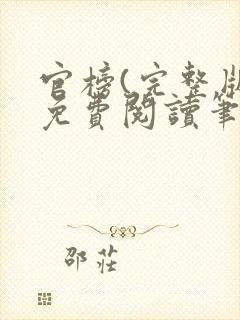 官榜(完整版
免費閱讀筆
邵莊